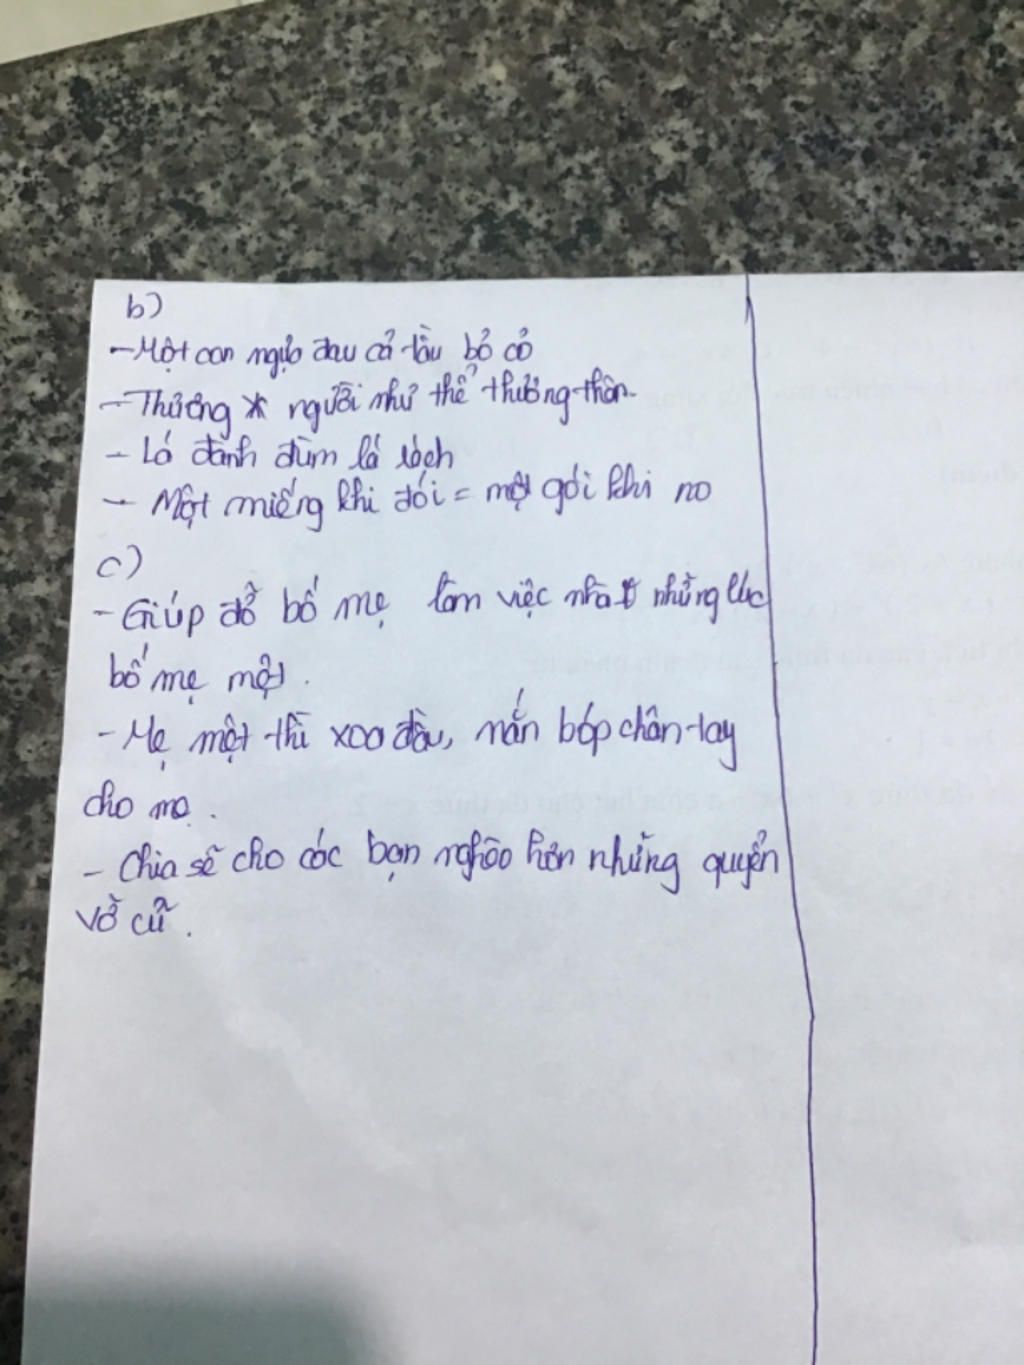 b)
- Một con ngựa đau cả tàu bỏ cỏ
- Thương người như thể thương thân.
- Lá đành đùm lá rách
- Một miếng khi đói = một gói khi no
c)
- Giúp đỡ bố mẹ làm việc nhà những lúc
bố mẹ mệt.
- Mẹ mệt thì xoa đầu, nắn bóp chân tay
cho mẹ.
- Chia sẽ cho các bạn nghèo hơn những quyển
vở cũ.